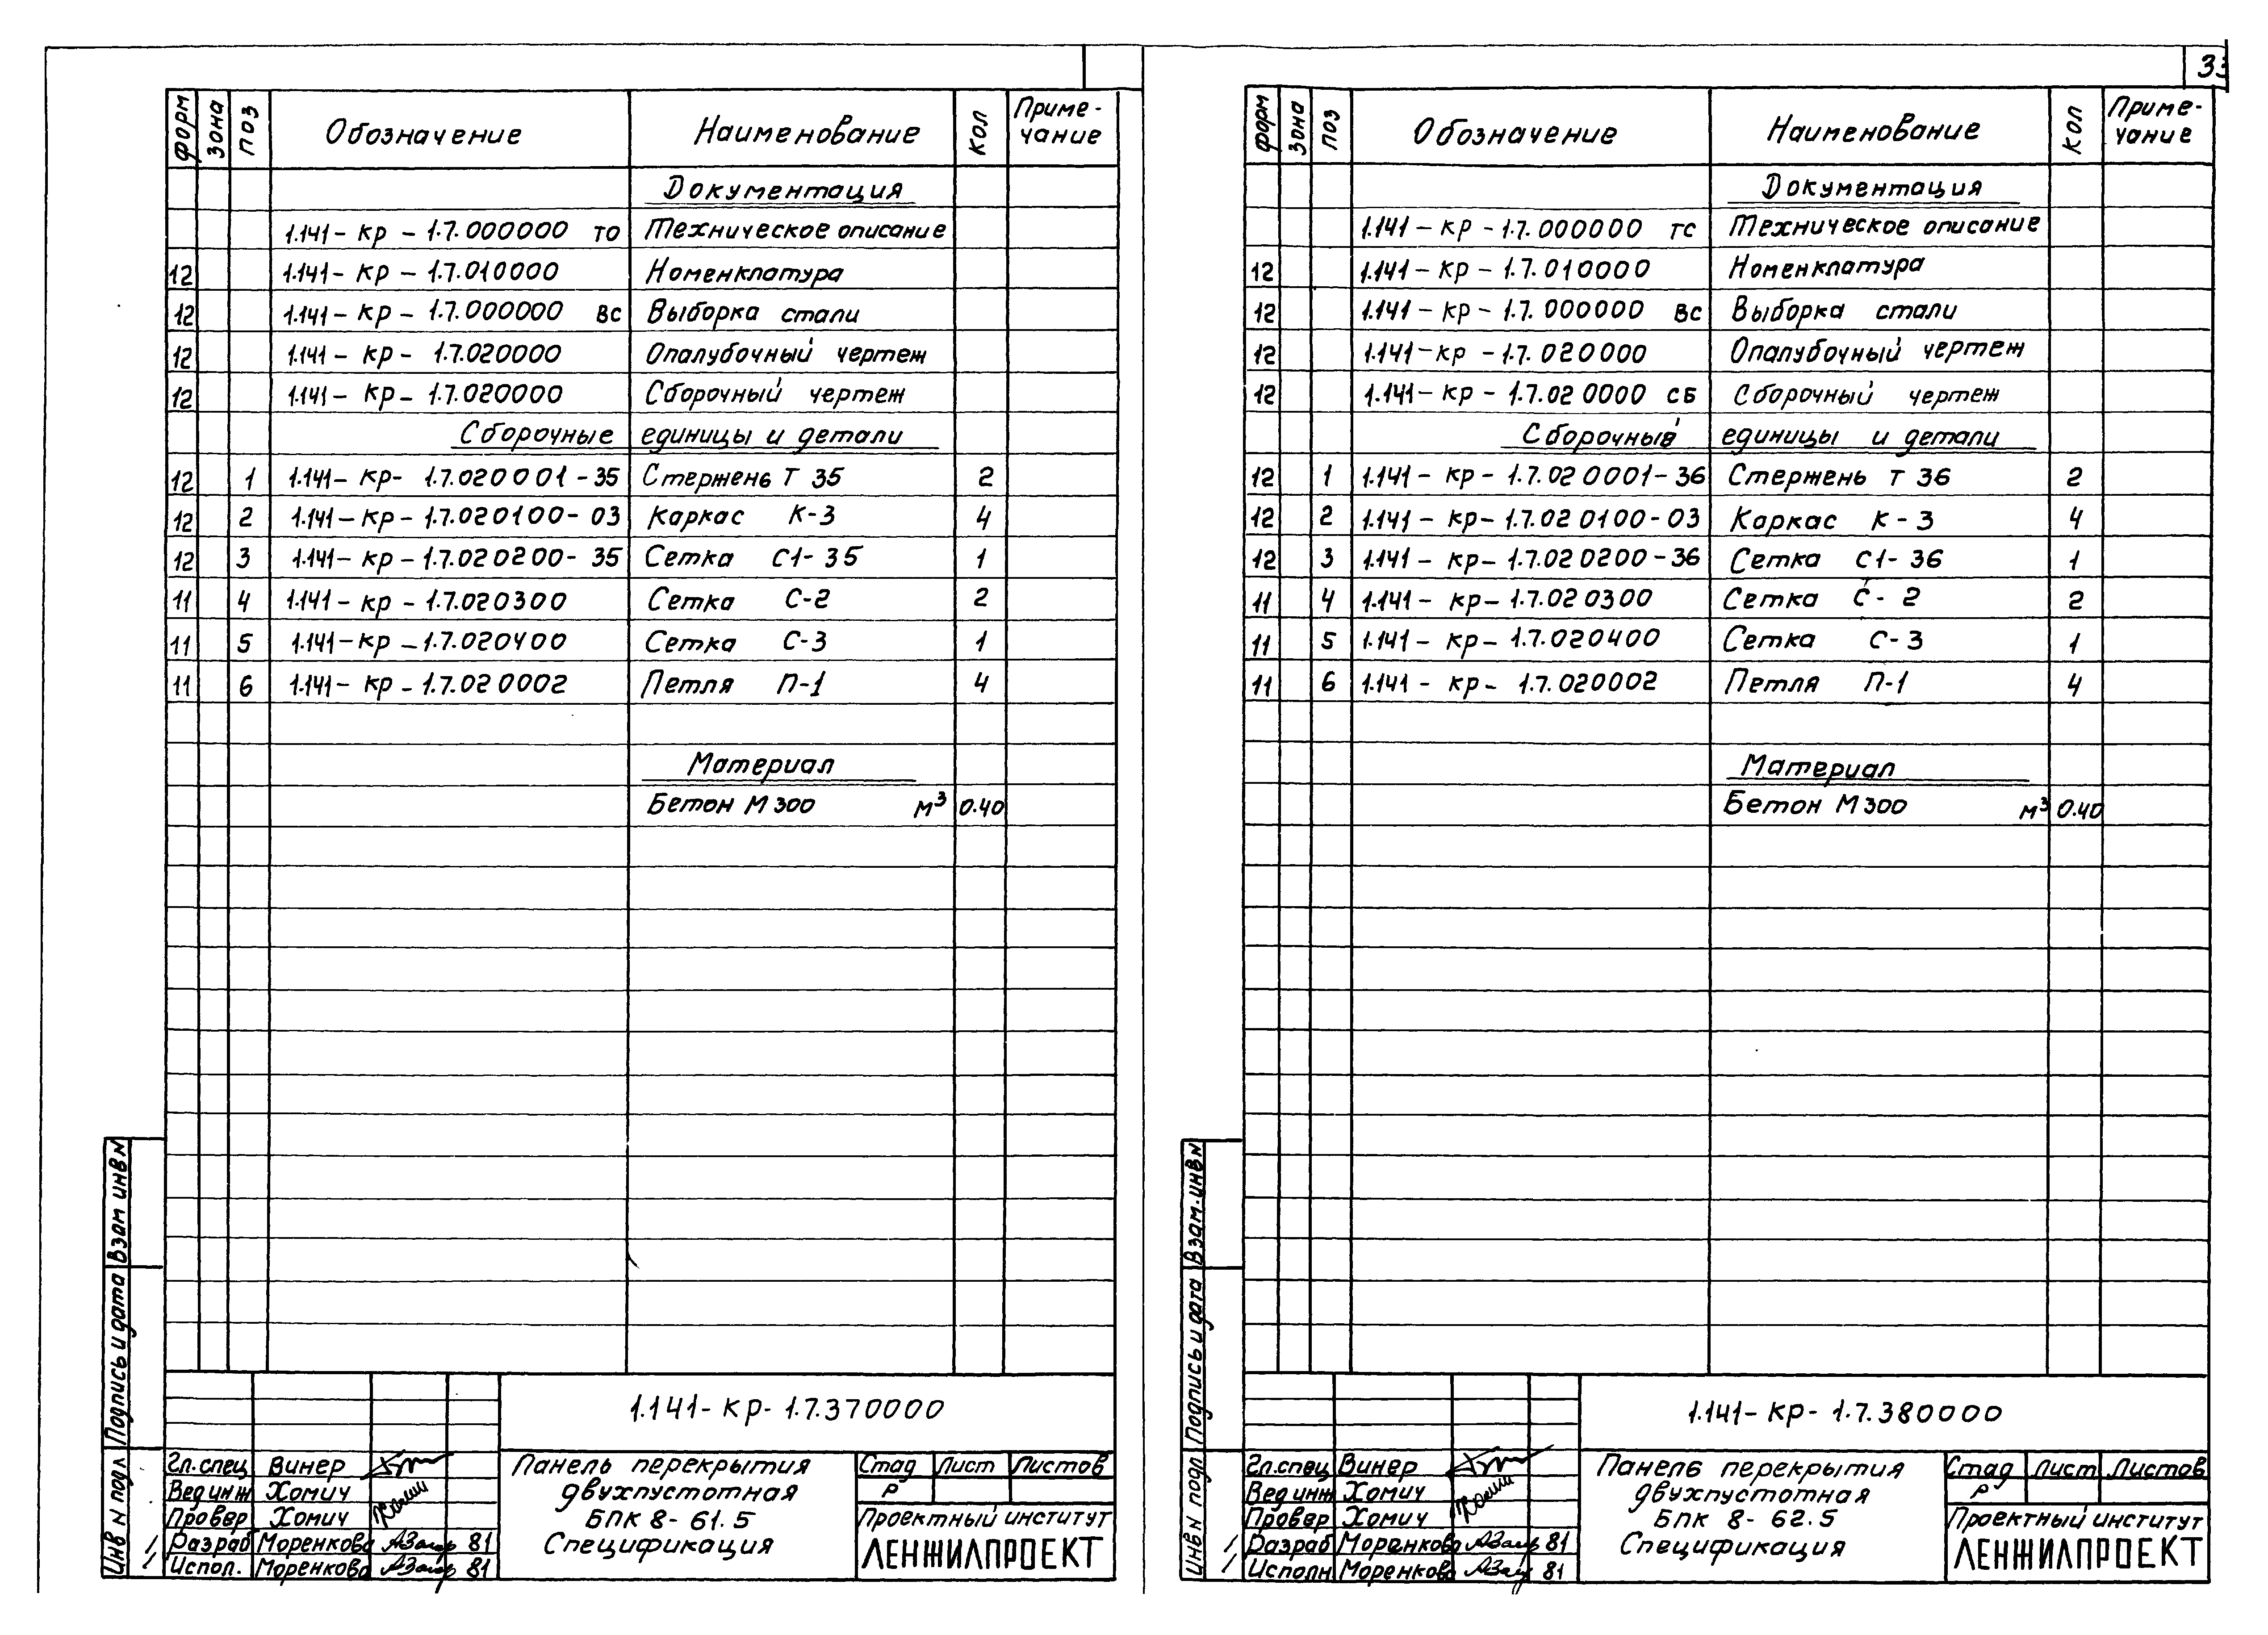 форм зона поз Обозначение Наименование кол Приме-
чание
Документация
1.141-кр-1.7.000000 ТО Техническое описание
12 1.141-кр-1.7.010000 Номенклатура
12 1.141-кр-1.7.000000 ВС Выборка стали
12 1.141-кр-1.7.020000 Опалубочный чертеж
12 1.141-кр-1.7.020000 Сборочный чертеж
Сборочные единицы и детали
12 1 1.141-кр-1.7.020001-35 Стержень Т 35 2
12 2 1.141-кр-1.7.020100-03 Каркас К-3 4
12 3 1.141-кр-1.7.020200-35 Сетка С1-35 1
11 4 1.141-кр-1.7.020300 Сетка С-2 2
11 5 1.141-кр-1.7.020400 Сетка С-3 1
11 6 1.141-кр-1.7.020002 Петля П-1 4
Материал
Бетон М300 м³ 0.40
Взам инв N
Подпись и дата
Инв N подл
1.141-кр-1.7.370000
Гл.спец Винер
Вед инж Хомич
Провер Хомич
Разраб Моренкова 81
Испол. Моренкова 81
Панель перекрытия
двухпустотная
БПК 8-61.5
Спецификация
Стад Лист Листов
Р
Проектный институт
ЛЕНЖИЛПРОЕКТ
33
форм зона поз Обозначение Наименование кол Приме-
чание
Документация
1.141-кр-1.7.000000 ТС Техническое описание
12 1.141-кр-1.7.010000 Номенклатура
12 1.141-кр-1.7.000000 ВС Выборка стали
12 1.141-кр-1.7.020000 Опалубочный чертеж
12 1.141-кр-1.7.020000 СБ Сборочный чертеж
Сборочные единицы и детали
12 1 1.141-кр-1.7.020001-36 Стержень Т 36 2
12 2 1.141-кр-1.7.020100-03 Каркас К-3 4
12 3 1.141-кр-1.7.020200-36 Сетка С1-36 1
11 4 1.141-кр-1.7.020300 Сетка С-2 2
11 5 1.141-кр-1.7.020400 Сетка С-3 1
11 6 1.141-кр-1.7.020002 Петля П-1 4
Материал
Бетон М300 м³ 0.40
Взам.инв N
Подпись и дата
Инв N подл
1.141-кр-1.7.380000
Гл.спец Винер
Вед инж Хомич
Провер Хомич
Разраб Моренкова 81
Исполн Моренкова 81
Панель перекрытия
двухпустотная
БПК 8-62.5
Спецификация
Стад Лист Листов
Р
Проектный институт
ЛЕНЖИЛПРОЕКТ